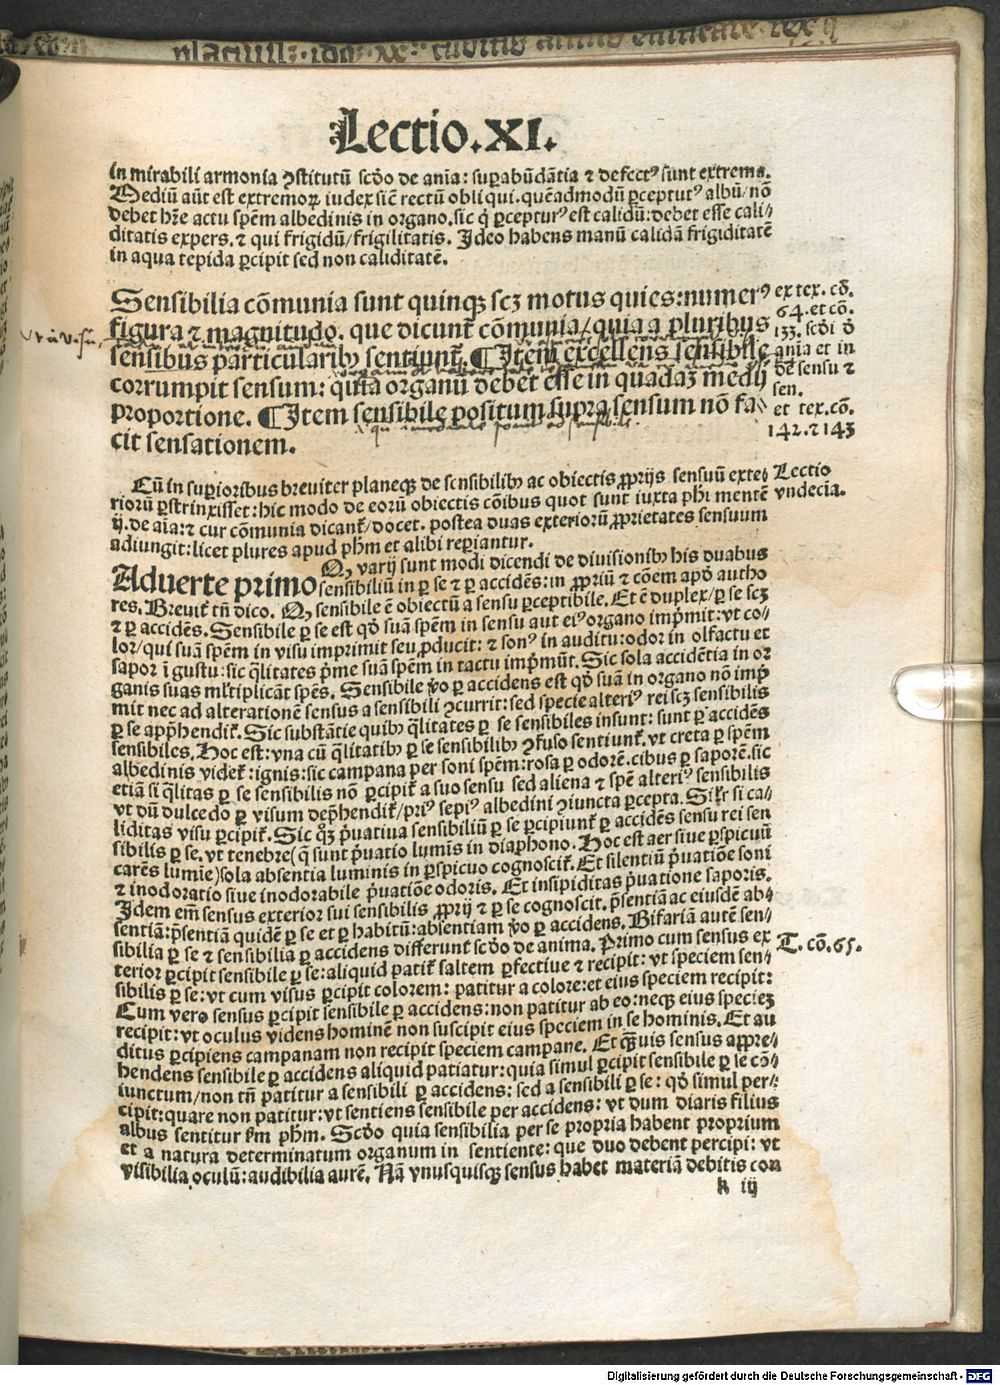 Lectio.XI.
in mirabili armonia ꝯstitutū scďo de aīa: suꝑabūdātia ⁊ defectꝰ sunt extrema.
Mediū aūt est extremoꝝ iudex siē rectū obliqui. quēadmodū ꝑcepturꝰ albū/nō
debet hr̄e actu spēm albedinis in organo. sic q̇ ꝑcepturꝰ est calidū: debet esse cali⸗
ditatis expers. ⁊ qui frigidū/frigilitatis. Ideo habens manū calidā frigiditatē
in aqua tepida ꝑcipit sed non caliditatē.
Sensibilia cōmunia sunt quinqꝫ scꝫ motus quies: numerꝰ
figura ⁊ magnitudo. que dicunt̄ cōmunia/quia a pluribus
sensibus particularibꝫ sentiunt̄. ¶Item excellens sensibile
corrumpit sensum: quia organū debet esse in quadaꝫ medij
proportione. ¶Item sensibile positum supra sensum nō fa⸗
cit sensationem.
ex tex. cō.
64. et cō.
133. scďi ď
aīa et in
de sensu ⁊
sen.
et tex. cō.
142. ⁊ 143
Cū in suꝑioribus breuiter planeqꝫ de sensibilibꝫ ac obiectis ꝓprijs sensuū exte⸗
riorū ꝑstrinxisset: hic modo de eorū obiectis cōibus quot sunt iuxta phī mentē
ij. de aīa: ⁊ cur cōmunia dicant̄/docet. postea duas exteriorū ꝓprietates sensuum
adiungit: licet plures apud phm et alibi reꝑiantur.
Lectio
vndecīa.
Aduerte primo Qꝫ varij sunt modi dicendi de diuisionibꝫ his duabus
sensibiliū in ꝑ se ⁊ ꝑ accidēs: in ꝓpriū ⁊ cōem apď autho
res. Breuit̄ tn̄ dico. Qꝫ sensibile ē obiectū a sensu ꝑceptibile. Et ē duplex/ꝑ se scꝫ
⁊ ꝑ accidēs. Sensibile ꝑ se est qď suā spēm in sensu aut eiꝰ organo imp̄mit: vt co⸗
lor/qui suā spēm in visu imprimit seu ꝓducit: ⁊ sonꝰ in auditu: odor in olfactu et
sapor ī gustu: sic q̄litates p̄me suā spēm in tactu imp̄mūt. Sic sola accidētia in or
ganis suas ml̄tiplicāt spēs. Sensibile v̊o ꝑ accidens est qď suā in organo nō imp̄
mit nec ad alterationē sensus a sensibili ꝯcurrit: sed specie alteriꝰ rei scꝫ sensibilis
ꝑ se app̄hendit̄. Sic substātie quibꝫ q̄litates ꝑ se sensibiles insunt: sunt ꝑ accidēs
sensibiles. Hoc est: vna cū q̄litatibꝫ ꝑ se sensibilibꝫ ꝯfuso sentiunt̄. vt creta ꝑ spēm
albedinis videt̄: ignis: sic campana per soni spēm: rosa ꝑ odorē. cibus ꝑ saporē. sic
etiā si q̄litas ꝑ se sensibilis nō ꝑcipit̄ a suo sensu sed aliena ⁊ spē alteriꝰ sensibilis
vt dū dulcedo ꝑ visum dep̄hendit̄/priꝰ sepiꝰ albedini ꝯiuncta ꝑcepta. Silr̄ si ca⸗
liditas visu ꝑcipit̄. Sic qꝫ p̄uatiua sensibiliū ꝑ se ꝑcipiunt̄ ꝑ accidēs sensu rei sen
sibilis ꝑ se. vt tenebre (q̄ sunt p̄uatio lumīs in diaphono. Hoc est aer siue ꝑspicuū
carēs lumīe) sola absentia luminis in ꝑspicuo cognoscit̄. Et silentiū p̄uatiōe soni
⁊ inodoratio siue inodorabile p̄uatiōe odoris. Et insipiditas p̄uatione saporis.
Idem em̄ sensus exterior sui sensibilis ꝓprij ⁊ ꝑ se cognoscit. p̄sentiā ac eiusdē ab⸗
sentiā: p̄sentiā quidē ꝑ se et ꝑ habitū: absentiam v̊o ꝑ accidens. Bifariā autē sen⸗
sibilia ꝑ se ⁊ sensibilia ꝑ accidens differunt scďo de anima. Primo cum sensus ex
terior ꝑcipit sensibile ꝑ se: aliquid patit̄ saltem ꝑfectiue ⁊ recipit: vt speciem sen⸗
sibilis ꝑ se: vt cum visus ꝑcipit colorem: patitur a colore: et eius speciem recipit:
Cum vero sensus ꝑcipit sensibile ꝑ accidens: non patitur ab eo: neqꝫ eius specieꝫ
recipit: vt oculus videns hominē non suscipit eius speciem in se hominis. Et au
ditus ꝑcipiens campanam non recipit speciem campane. Et q̄ꝫuis sensus appre⸗
hendens sensibile ꝑ accidens aliquid patiatur: quia simul ꝑcipit sensibile ꝑ se cō⸗
iunctum/non tn̄ patitur a sensibili ꝑ accidens: sed a sensibili ꝑ se: qď simul per⸗
cipit: quare non patitur: vt sentiens sensibile per accidens: vt dum diaris filius
albus sentitur ẜm phm. Scďo quia sensibilia per se propria habent proprium
et a natura determinatum organum in sentiente: que duo debent percipi: vt
visibilia oculū: audibilia aurē. Nā vnusquisqꝫ sensus habet materiā debitis con
T. cō. 65.
k iij
Digitalisierung gefördert durch die Deutsche Forschungsgemeinschaft - DFG